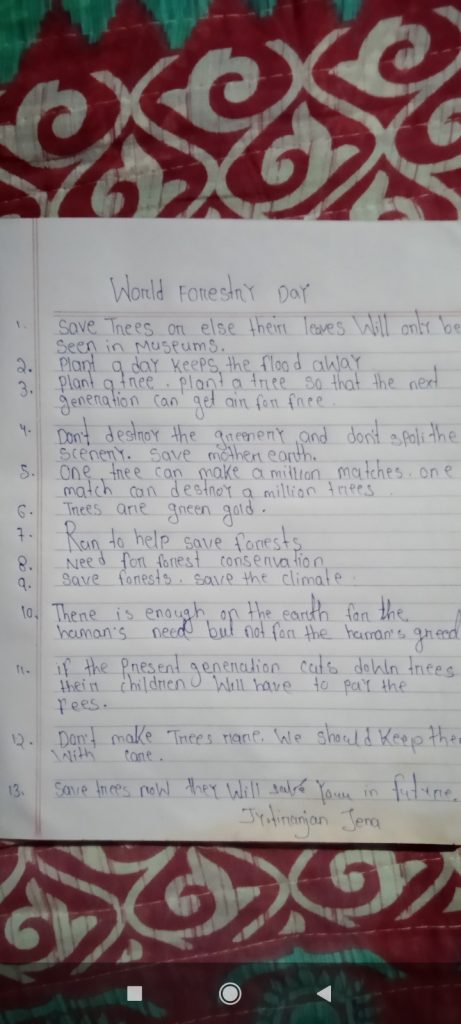 World Forestry Day
1. Save Trees or else their leaves Will only be
seen in Museums.
2. Plant a day keeps the flood away
3. Plant a tree. Plant a tree so that the next
generation can get air for free.
4. Don't destroy the greenery and don't spoli the
scenery. Save mother earth.
5. One tree can make a million matches. one
match can destroy a million trees
6. Trees are green gold.
7. Ran to help save forests
8. Need for forest conservation
9. Save forests. Save the climate.
10. There is enough on the earth for the
haman's need but not for the haman's greed
11. if the Present generation cats down trees
their children Will have to pay the
Fees.
12. Don't make Trees rare. We should keep the
With care.
13. Save trees now they Will save Your in future.
Jyotiranjan Jena